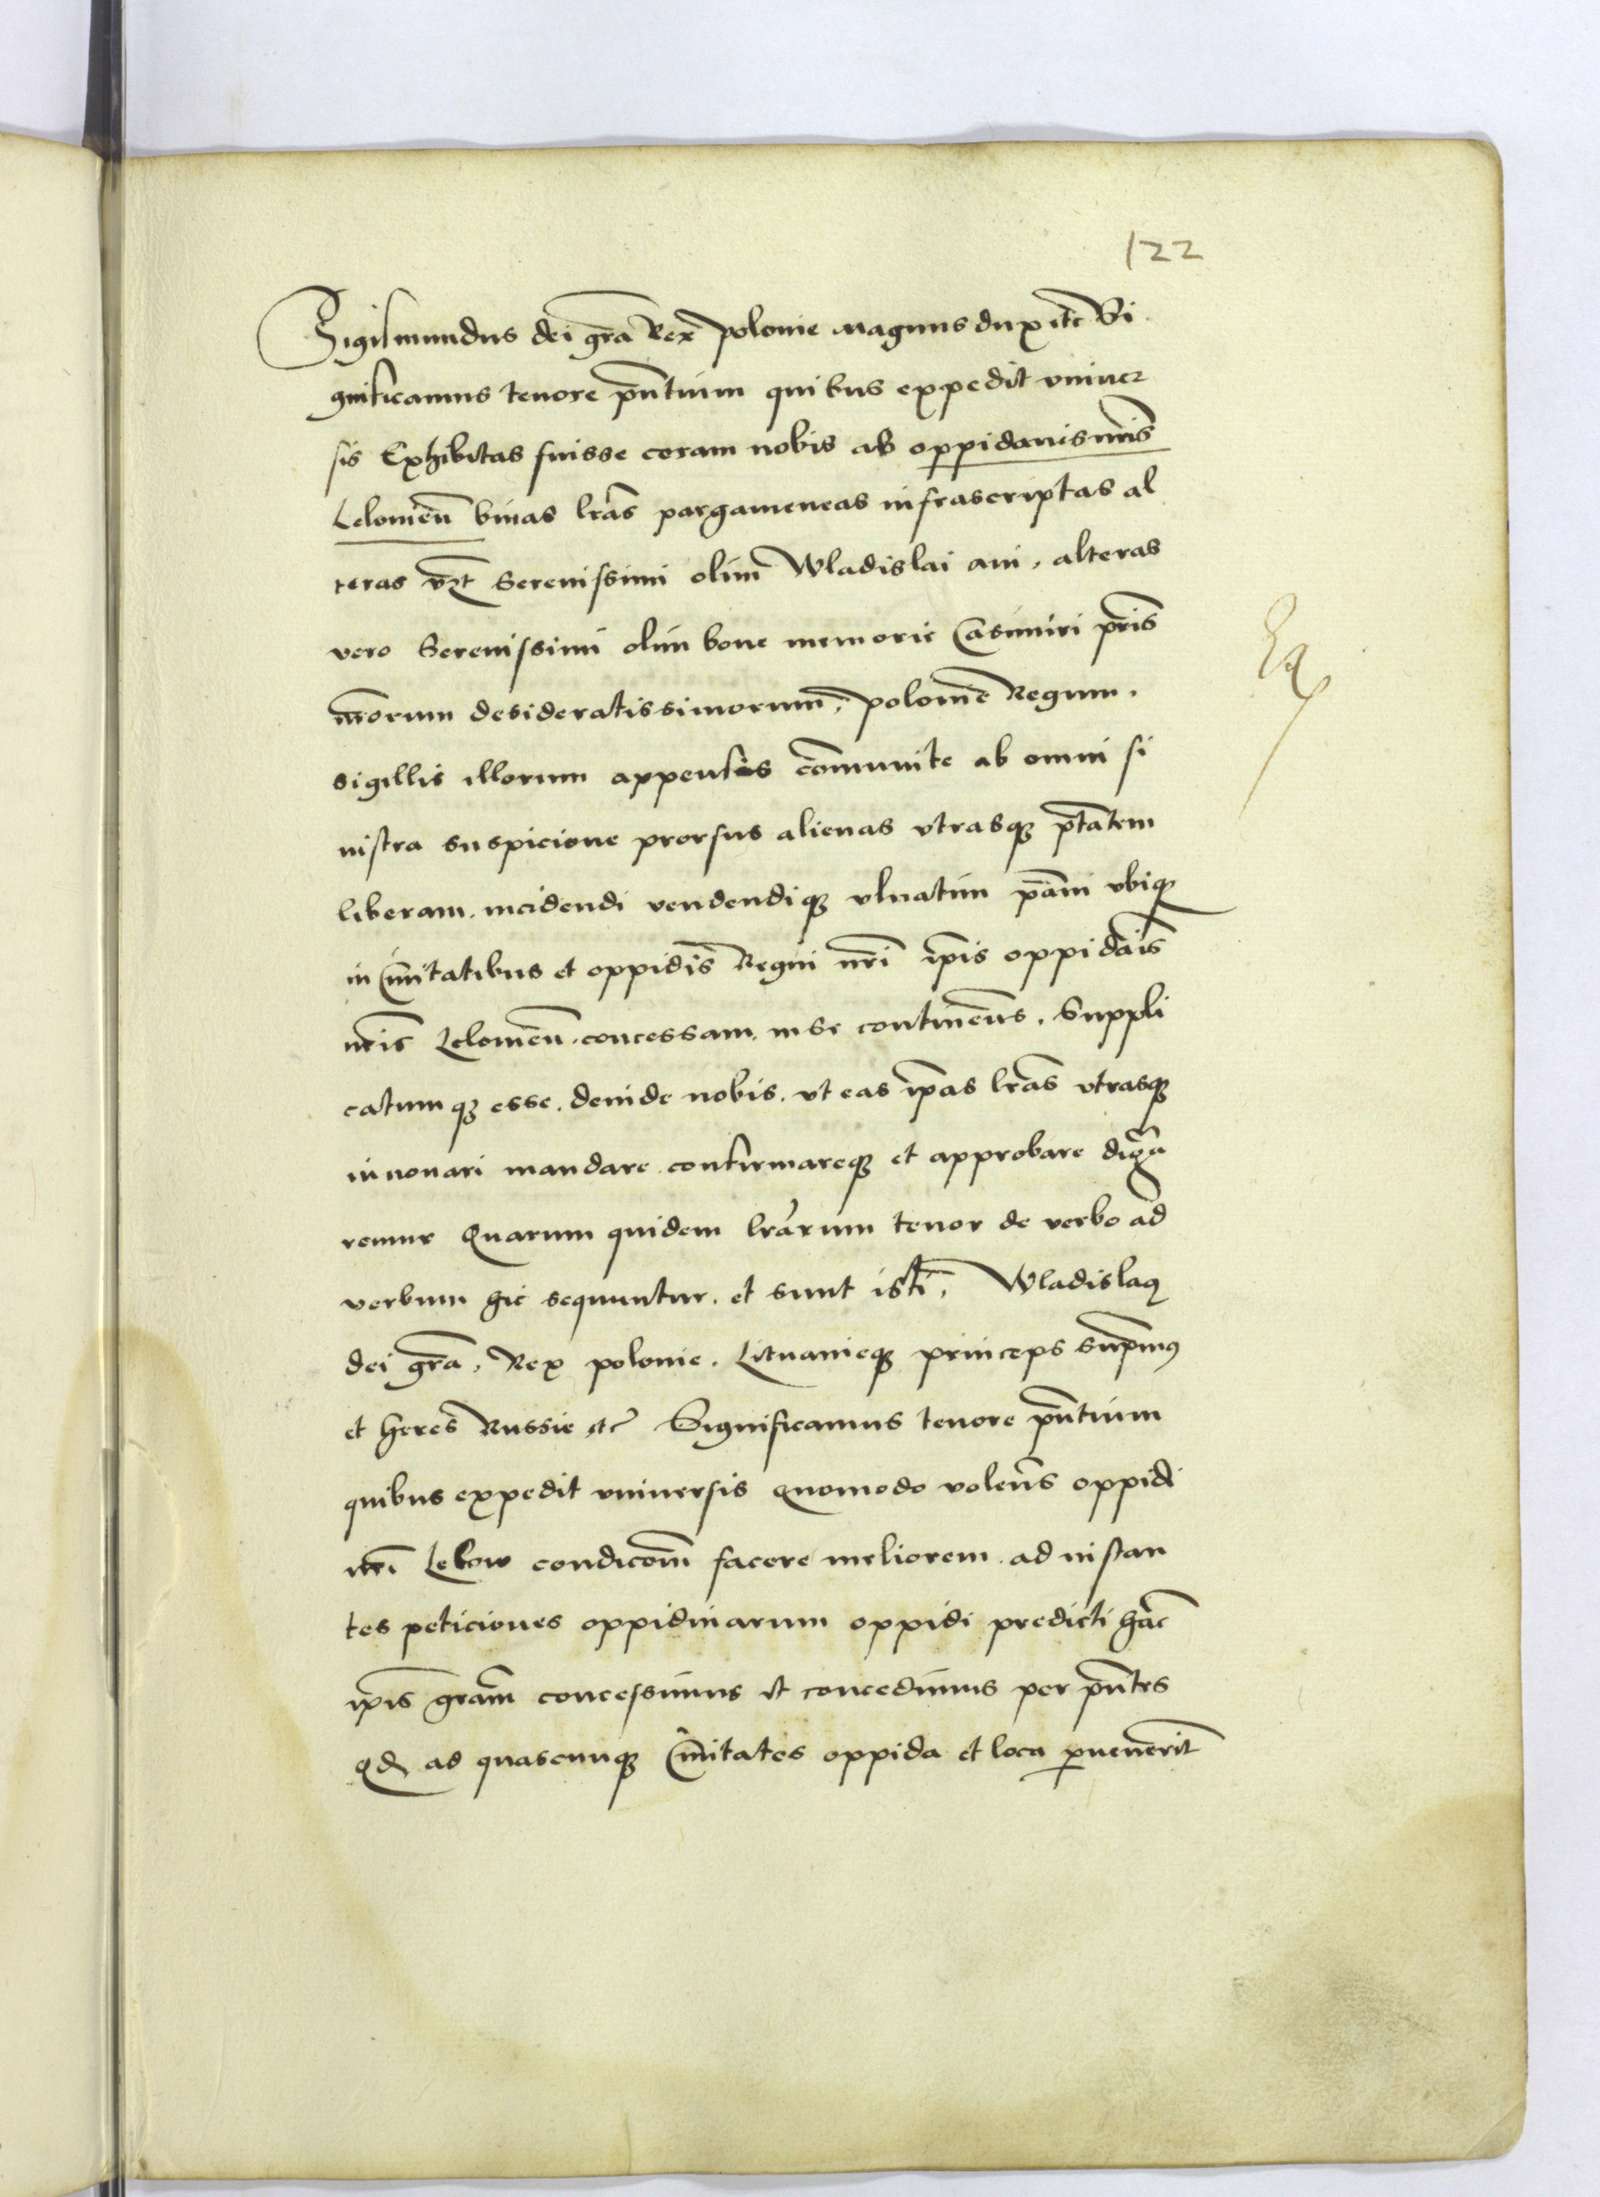 122
Sigismundus dei gra Rex polonie magnus dux etc Si
gnificamus tenore pntium quibus expedit vniuer
sis Exhibitas fuisse coram nobis ab oppidanis nris
Lelouien binas lras pargameneas infrascriptas al
teras vzt Serenissimi olim Wladislai aui, alteras
vero Serenissimi olim bone memorie Casimiri pris
nrorum desideratissimorum, polonie Regum.
sigillis illorum appensis communite ab omni si
nistra suspicione prorsus alienas vtrasq ptatem
liberam. incidendi vendendiq vlnatim panni vbiq
in Ciuitatibus et oppidis Regni nri ipis oppidais
nris Lelouien. concessam. in se continens. Suppli
catumq esse. deinde nobis. vt eas ipas lras vtrasq
innouari mandare confirmareq et approbare digna
remur Quarum quidem lrarum tenor de verbo ad
verbum hic sequuntur. et sunt isti. Wladislaq
dei gra. Rex polonie. Lituanieq princeps supmq
et heres Russie etc Significamus tenore pntium
quibus expedit vniuersis quomodo volens oppidi
nri Lelow condicom facere meliorem ad instan
tes peticiones oppidinarum oppidi predicti hac
ipis gram concessimus et concedimus per pntes
qd ad quascunq Ciuitates oppida et loca puenerit